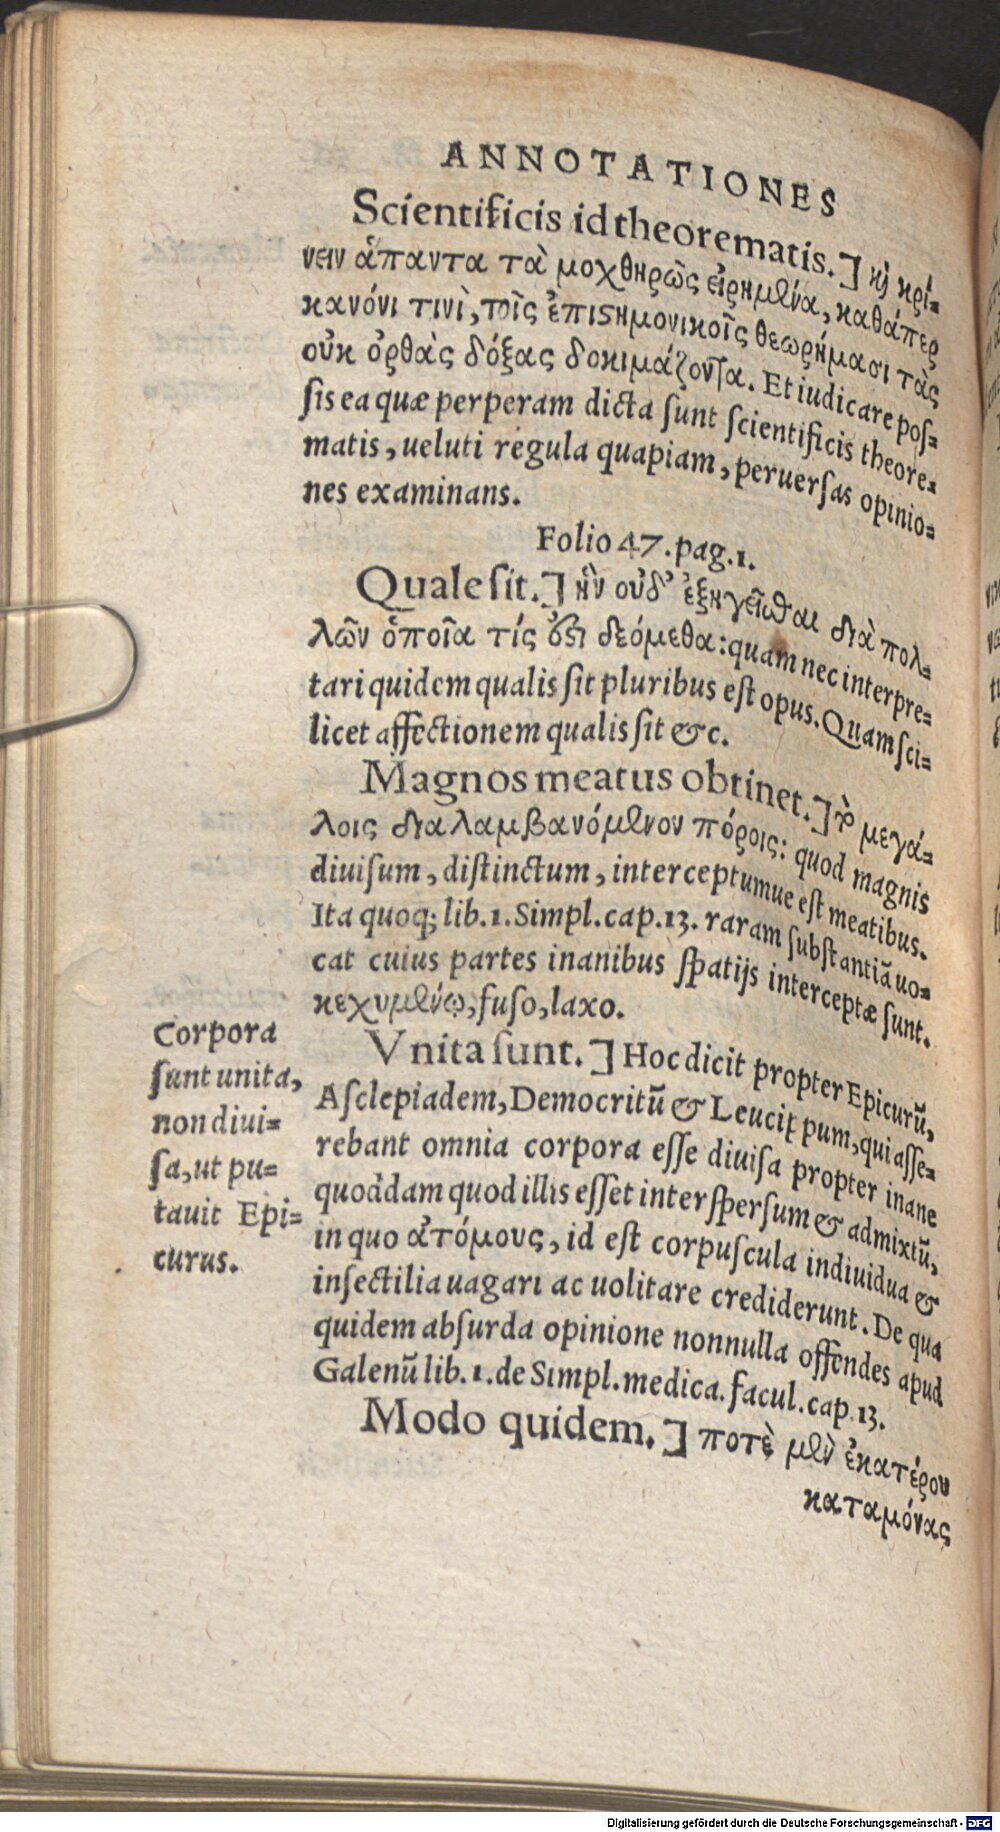 ANNOTATIONES
Scientificis id theorematis.] κỳ κρί-
νειν ἅπαντα τὰ μοχθηρῶς εἰρημένα, καθάπερ
κανόνι τινὶ, τοῖς ἐπιϛημονικοῖς θεωρήμασι τὰς
οὐκ ὀρθὰς δόξας δοκιμάζοντα. Et iudicare pos-
sis ea quæ perperam dicta sunt scientificis theore-
matis, ueluti regula quapiam, peruersas opinio-
nes examinans.
Folio 47. pag. 1.
Quale sit.] ἣν οὐδ' ἐξηγεῖσθαι διὰ πολ-
λῶν ὁποῖα τίς ὅζι δεόμεθα: quam nec interpre-
tari quidem qualis sit pluribus est opus. Quam sci-
licet affectionem qualis sit &c.
Magnos meatus obtinet.] τὸ μεγά-
λοις διαλαμβανόμενον πόροις: quod magnis
diuisum, distinctum, interceptumue est meatibus.
Ita quoq; lib. 1. Simpl. cap. 13. raram substantiā uo-
cat cuius partes inanibus spatijs interceptæ sunt.
κεχυμένῳ, fuso, laxo.
Corpora
sunt unita,
non diui-
sa, ut pu-
tauit Epi-
curus.
Vnita sunt.] Hoc dicit propter Epicurū,
Asclepiadem, Democritū & Leucippum, qui asse-
rebant omnia corpora esse diuisa propter inane
quoddam quod illis esset interspersum & admixtū,
in quo ἀτόμους, id est corpuscula indiuidua &
insectilia uagari ac uolitare crediderunt. De qua
quidem absurda opinione nonnulla offendes apud
Galenū lib. 1. de Simpl. medica. facul. cap. 13.
Modo quidem.] ποτὲ μὲν ἑκατέρου
καταμόνας
Digitalisierung gefördert durch die Deutsche Forschungsgemeinschaft - DFG